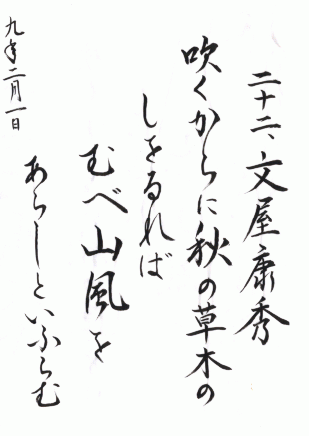 二十二、文屋康秀
吹くからに秋の草木の
しをるれば
むべ山風を
あらしといふらむ
九年二月一日